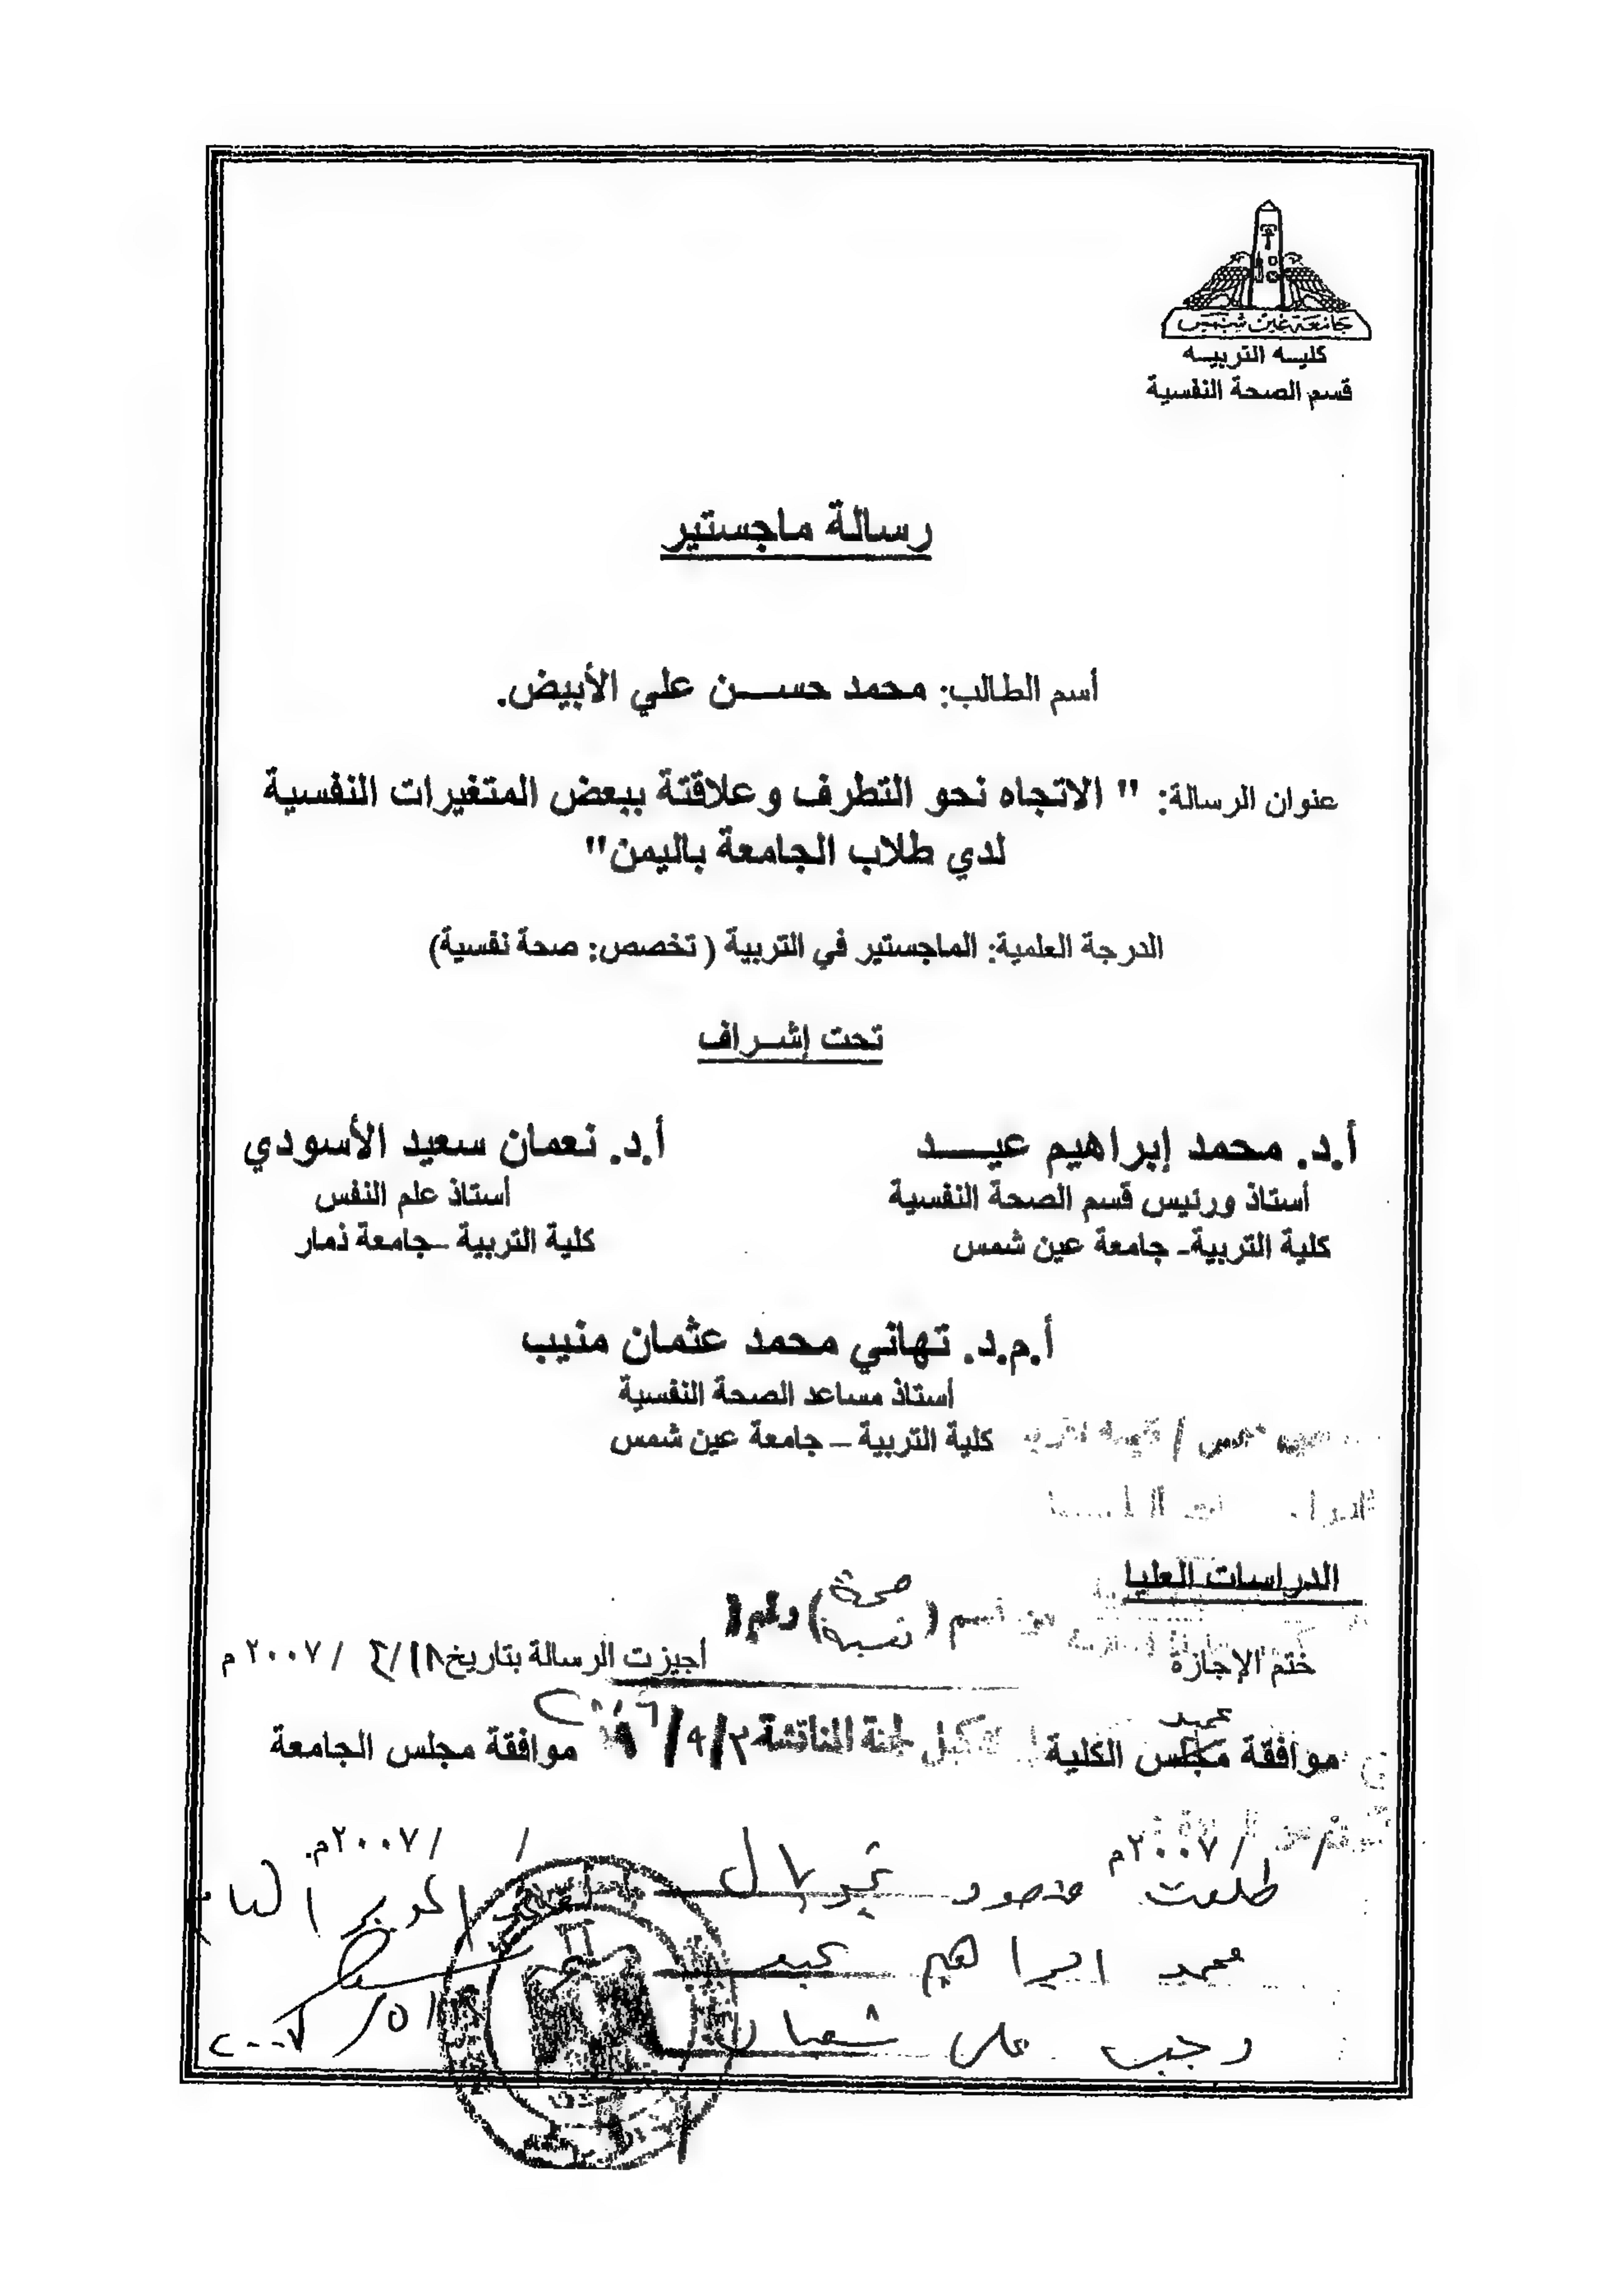 جامعة عين شمس
كليه التربيه
قسم الصحة النفسية
رسالة ماجستير
أسم الطالب: محمد حســـن علي الأبيض.
عنوان الرسالة: " الاتجاه نحو التطرف وعلاقتة ببعض المتغيرات النفسية
لدي طلاب الجامعة باليمن"
الدرجة العلمية: الماجستير في التربية ( تخصص: صحة نفسية)
تحت إشـراف
أ.د. محمد إبراهيم عيـــد
أستاذ ورئيس قسم الصحة النفسية
كلية التربية- جامعة عين شمس
أ.د. نعمان سعيد الأسودي
أستاذ علم النفس
كلية التربية –جامعة ذمار
أ.م.د. تهاني محمد عثمان منيب
أستاذ مساعد الصحة النفسية
كلية التربية – جامعة عين شمس
الدراسات العليا
قسم ( صحة نفسية )
ختم الإجازة
أجيزت الرسالة بتاريخ / / ٢٠٠٧ م
لجنة المناقشة
موافقة مجلس الكلية
موافقة مجلس الجامعة
/ / ٢٠٠٧م
/ / ٢٠٠٧م.
طلعت منصور غبريال
محمد ابراهيم عيد
رجب علي شعبان